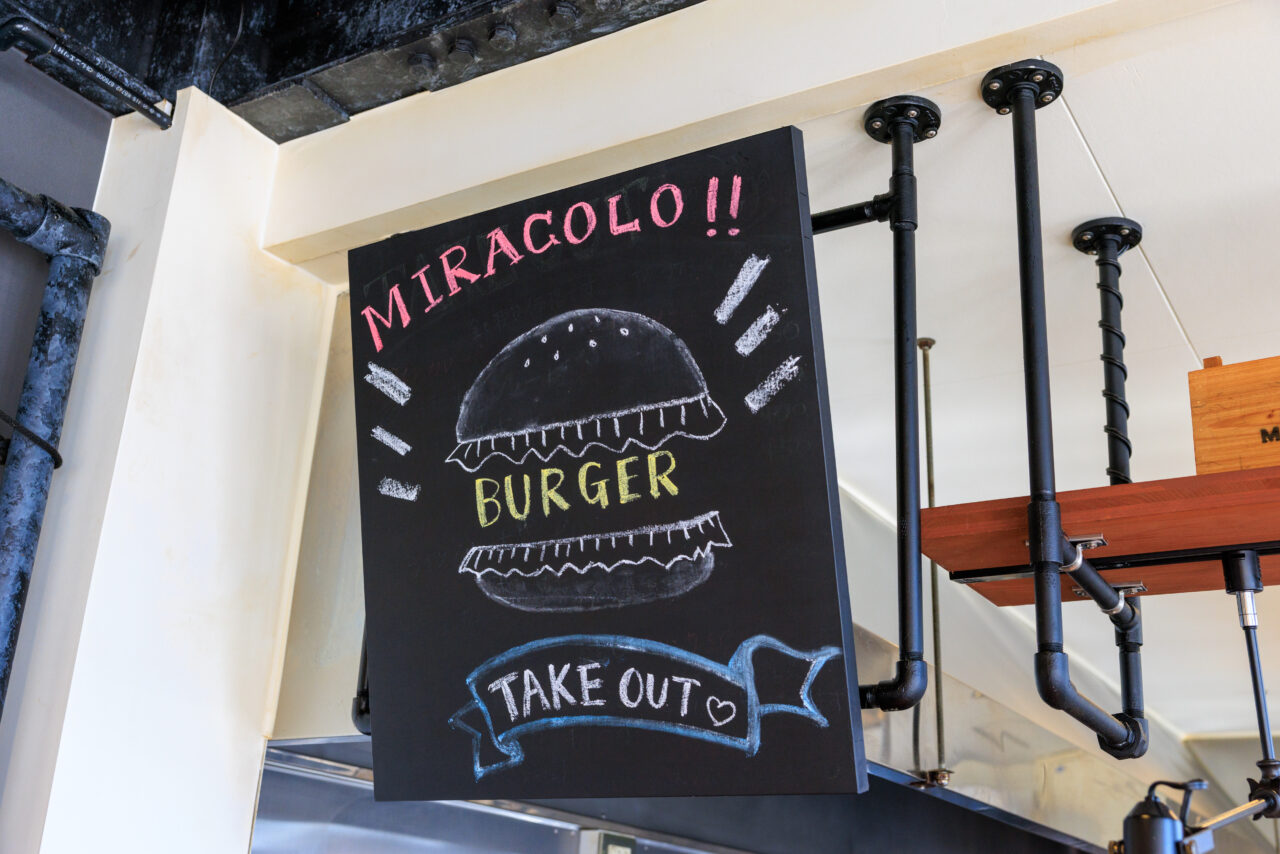 MIRACOLO!!
BURGER
TAKE OUT♡